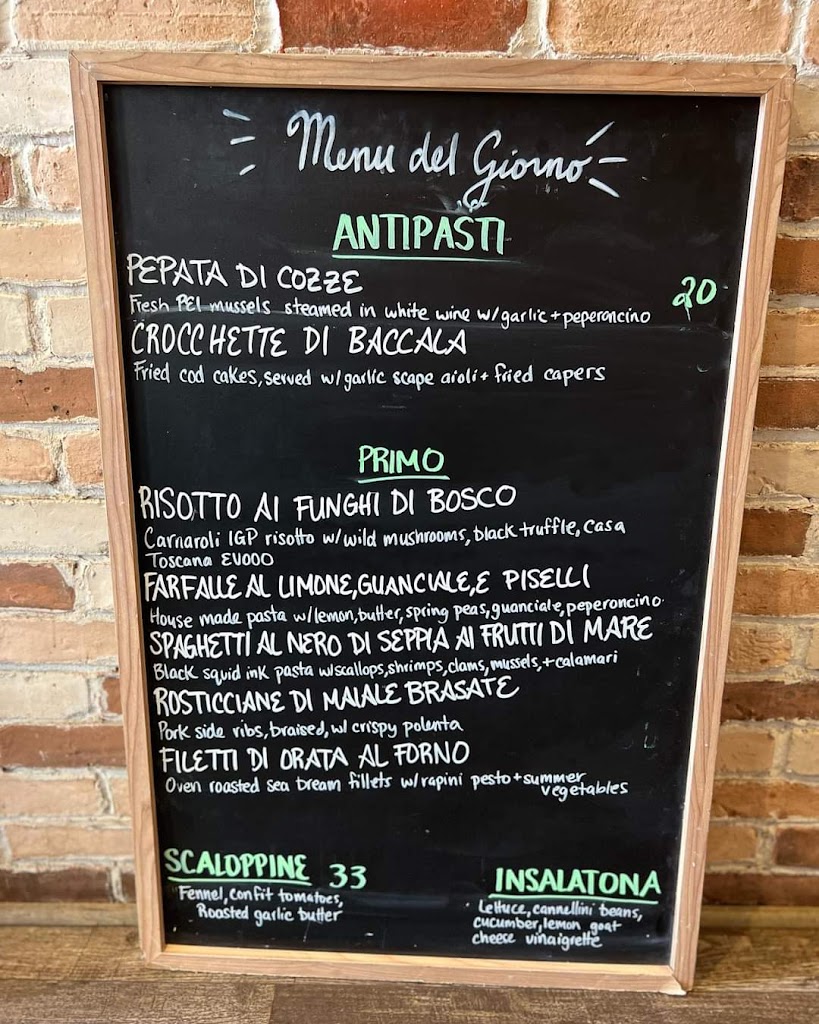 Menu del Giorno
ANTIPASTI
PEPATA DI COZZE 20
Fresh PEI mussels steamed in white wine w/garlic + peperoncino
CROCCHETTE DI BACCALA
Fried cod cakes, served w/garlic scape aioli + fried capers
PRIMO
RISOTTO AI FUNGHI DI BOSCO
Carnaroli IGP risotto w/wild mushrooms, black truffle, Casa
Toscana EVOOO
FARFALLE AL LIMONE, GUANCIALE, E PISELLI
House made pasta w/lemon, butter, spring peas, guanciale, peperoncino
SPAGHETTI AL NERO DI SEPPIA AI FRUTTI DI MARE
Black squid ink pasta w/scallops, shrimps, clams, mussels, + calamari
ROSTICCIANE DI MAIALE BRASATE
Pork side ribs, braised, w/ crispy polenta
FILETTI DI ORATA AL FORNO
Oven roasted sea bream fillets w/rapini pesto + summer
vegetables
SCALOPPINE 33
Fennel, confit tomatoes,
Roasted garlic butter
INSALATONA
Lettuce, cannellini beans,
cucumber, lemon goat
cheese vinaigrette